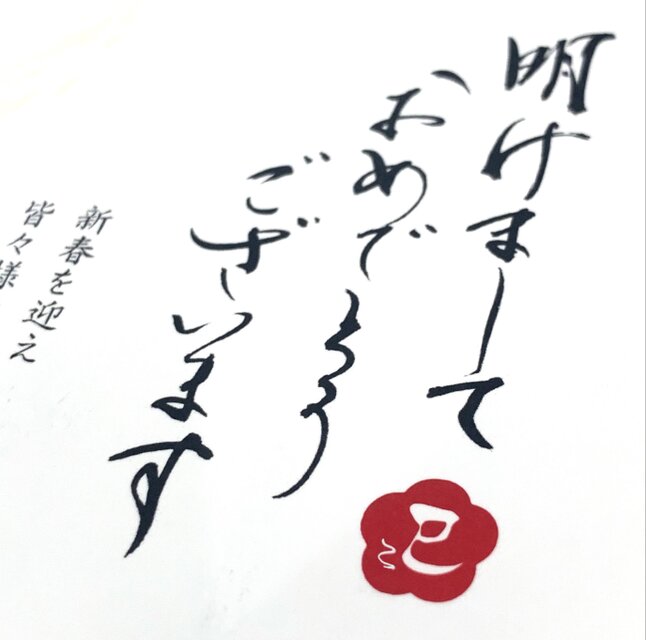 明けまして
おめでとう
ございます
巳
新春を迎え
皆々様